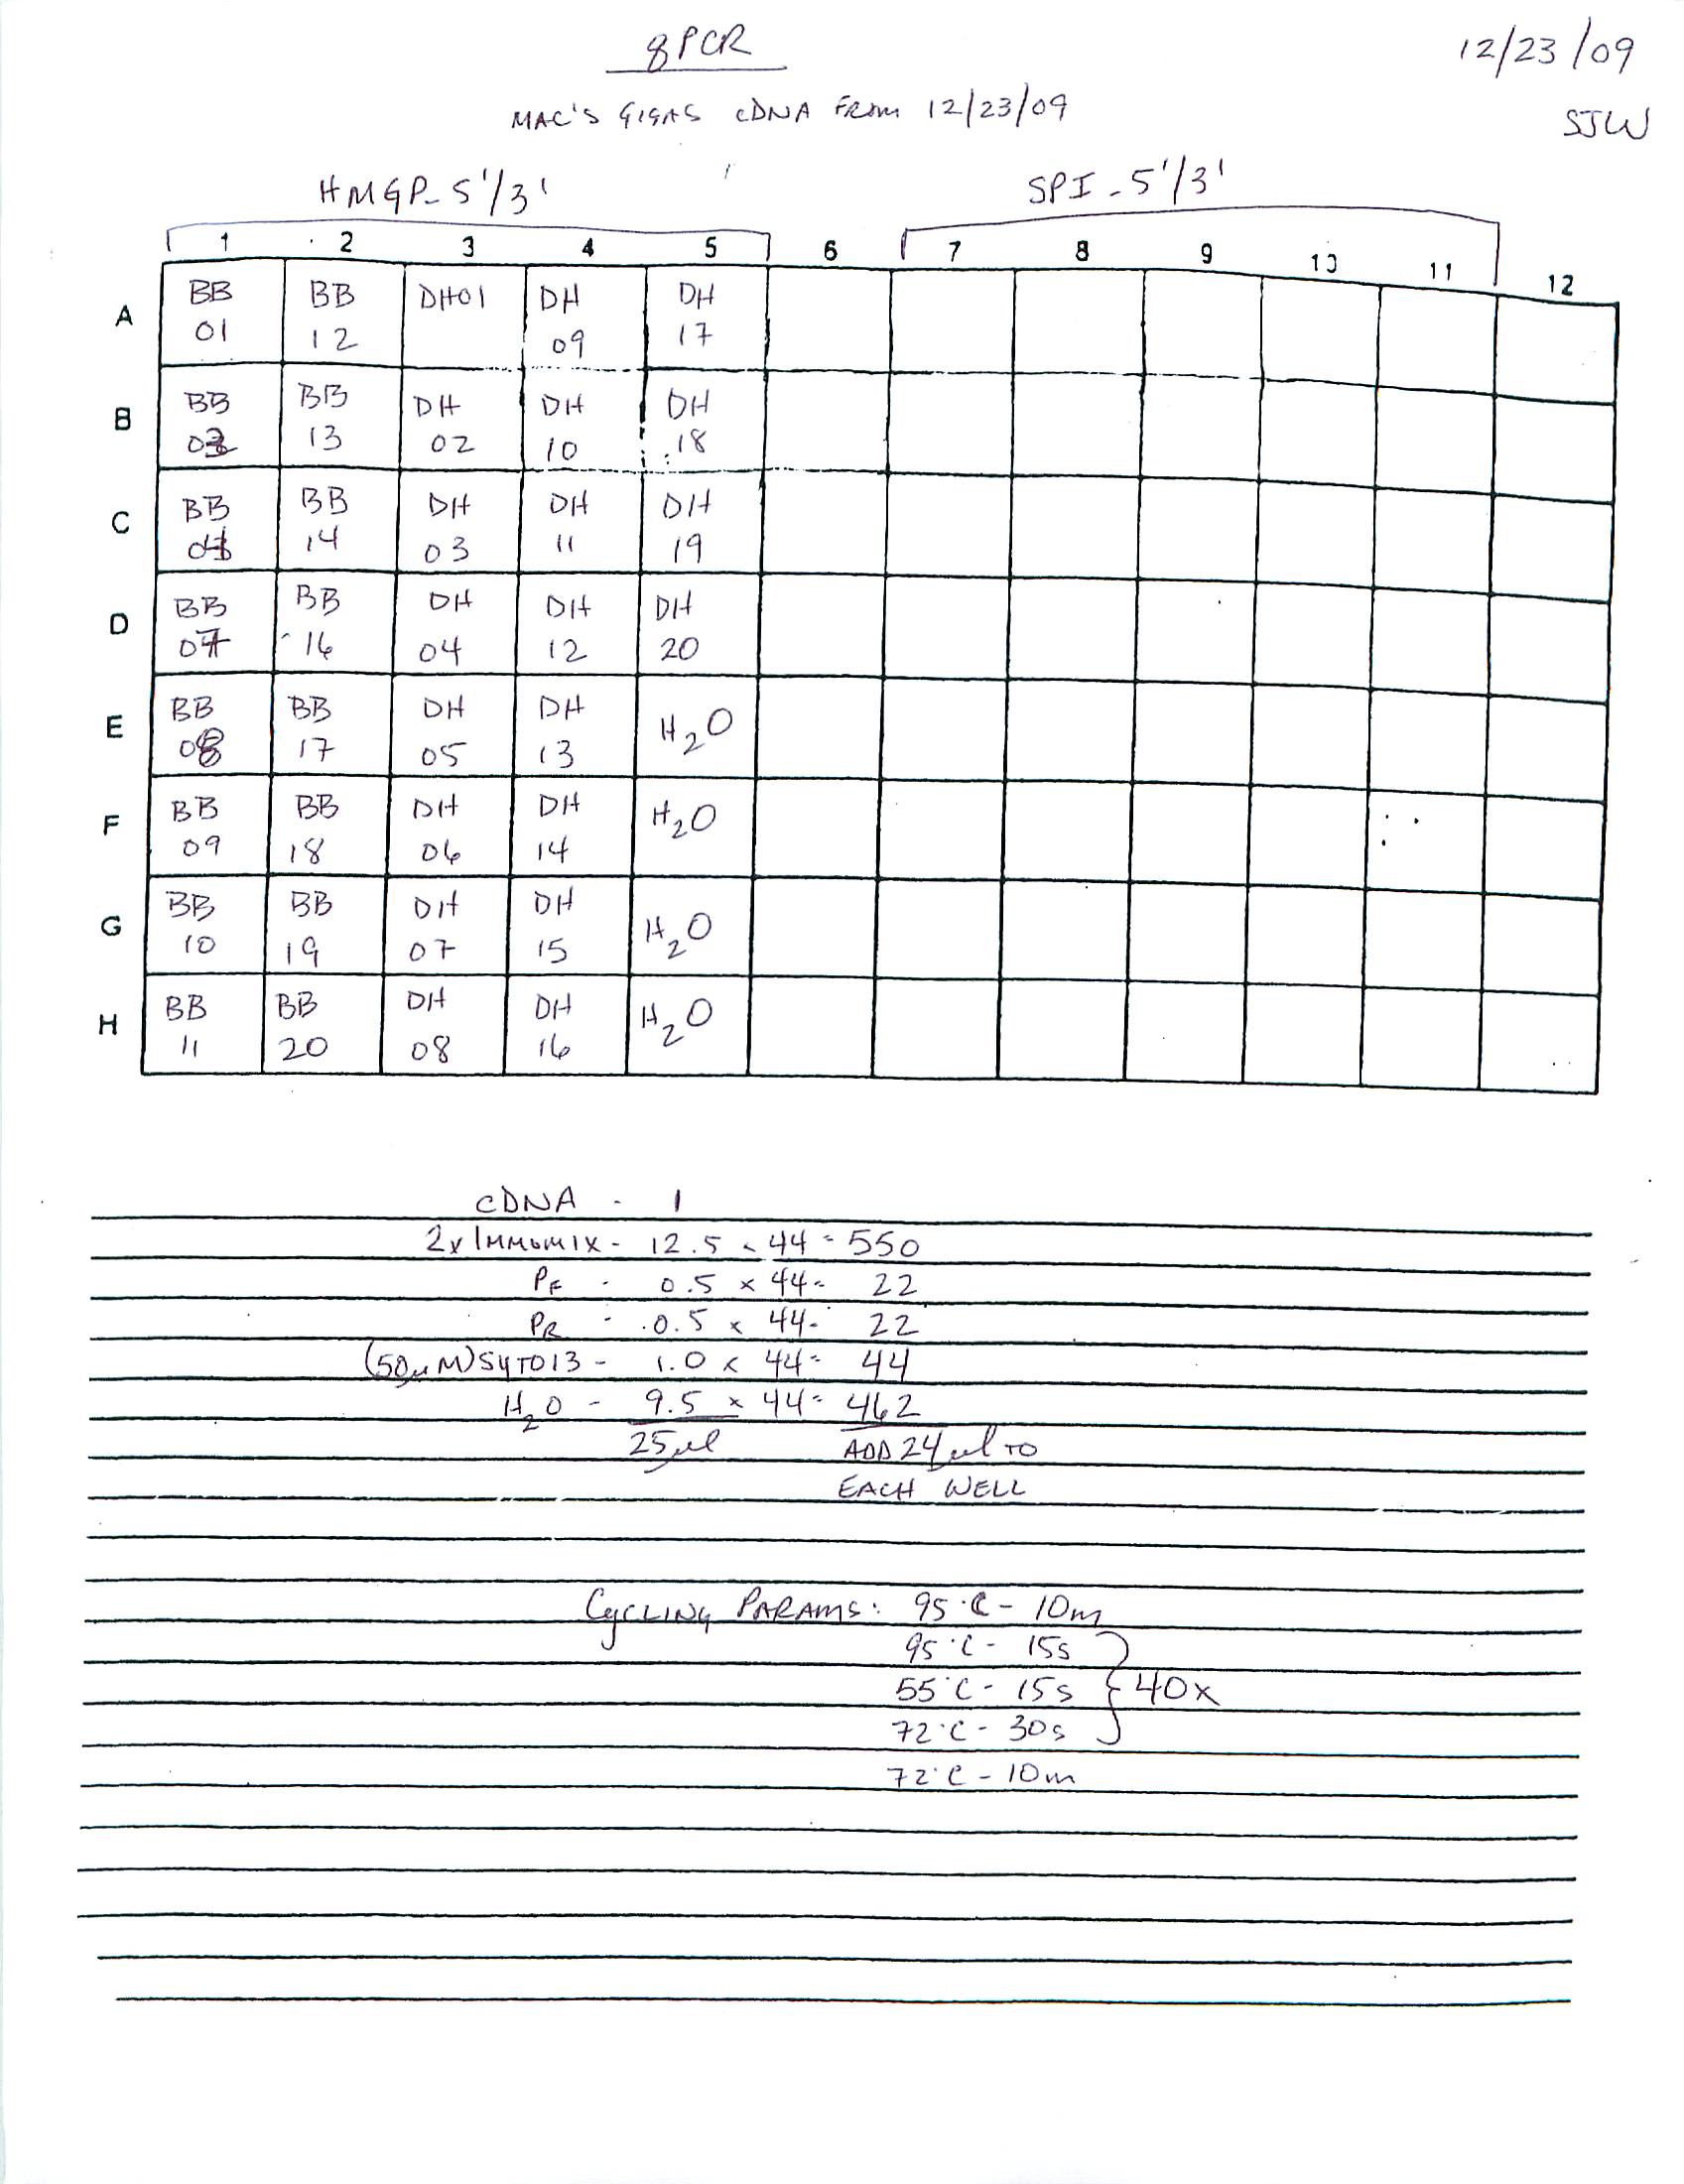 qPCR
12/23/09
MAC'S GIGAS cDNA FROM 12/23/09
SJW
HMGP_5'/3'
SPI_5'/3'
1 2 3 4 5 6 7 8 9 10 11 12
A BB 01 BB 12 DH01 DH 09 DH 17
B BB BB 13 DH 02 DH 10 DH 18
C BB BB 14 DH 03 DH 11 DH 19
D BB 07 BB 16 DH 04 DH 12 DH 20
E BB 08 BB 17 DH 05 DH 13 H2O
F BB 09 BB 18 DH 06 DH 14 H2O
G BB 10 BB 19 DH 07 DH 15 H2O
H BB 11 BB 20 DH 08 DH 16 H2O
cDNA - 1
2x IMMOMIX - 12.5 x 44 = 550
PF - 0.5 x 44 = 22
PR - 0.5 x 44 = 22
(50µM) SYTO13 - 1.0 x 44 = 44
H2O - 9.5 x 44 = 462
25µl ADD 24µl TO
EACH WELL
CYCLING PARAMS: 95°C - 10m
95°C - 15s
55°C - 15s } 40x
72°C - 30s
72°C - 10m